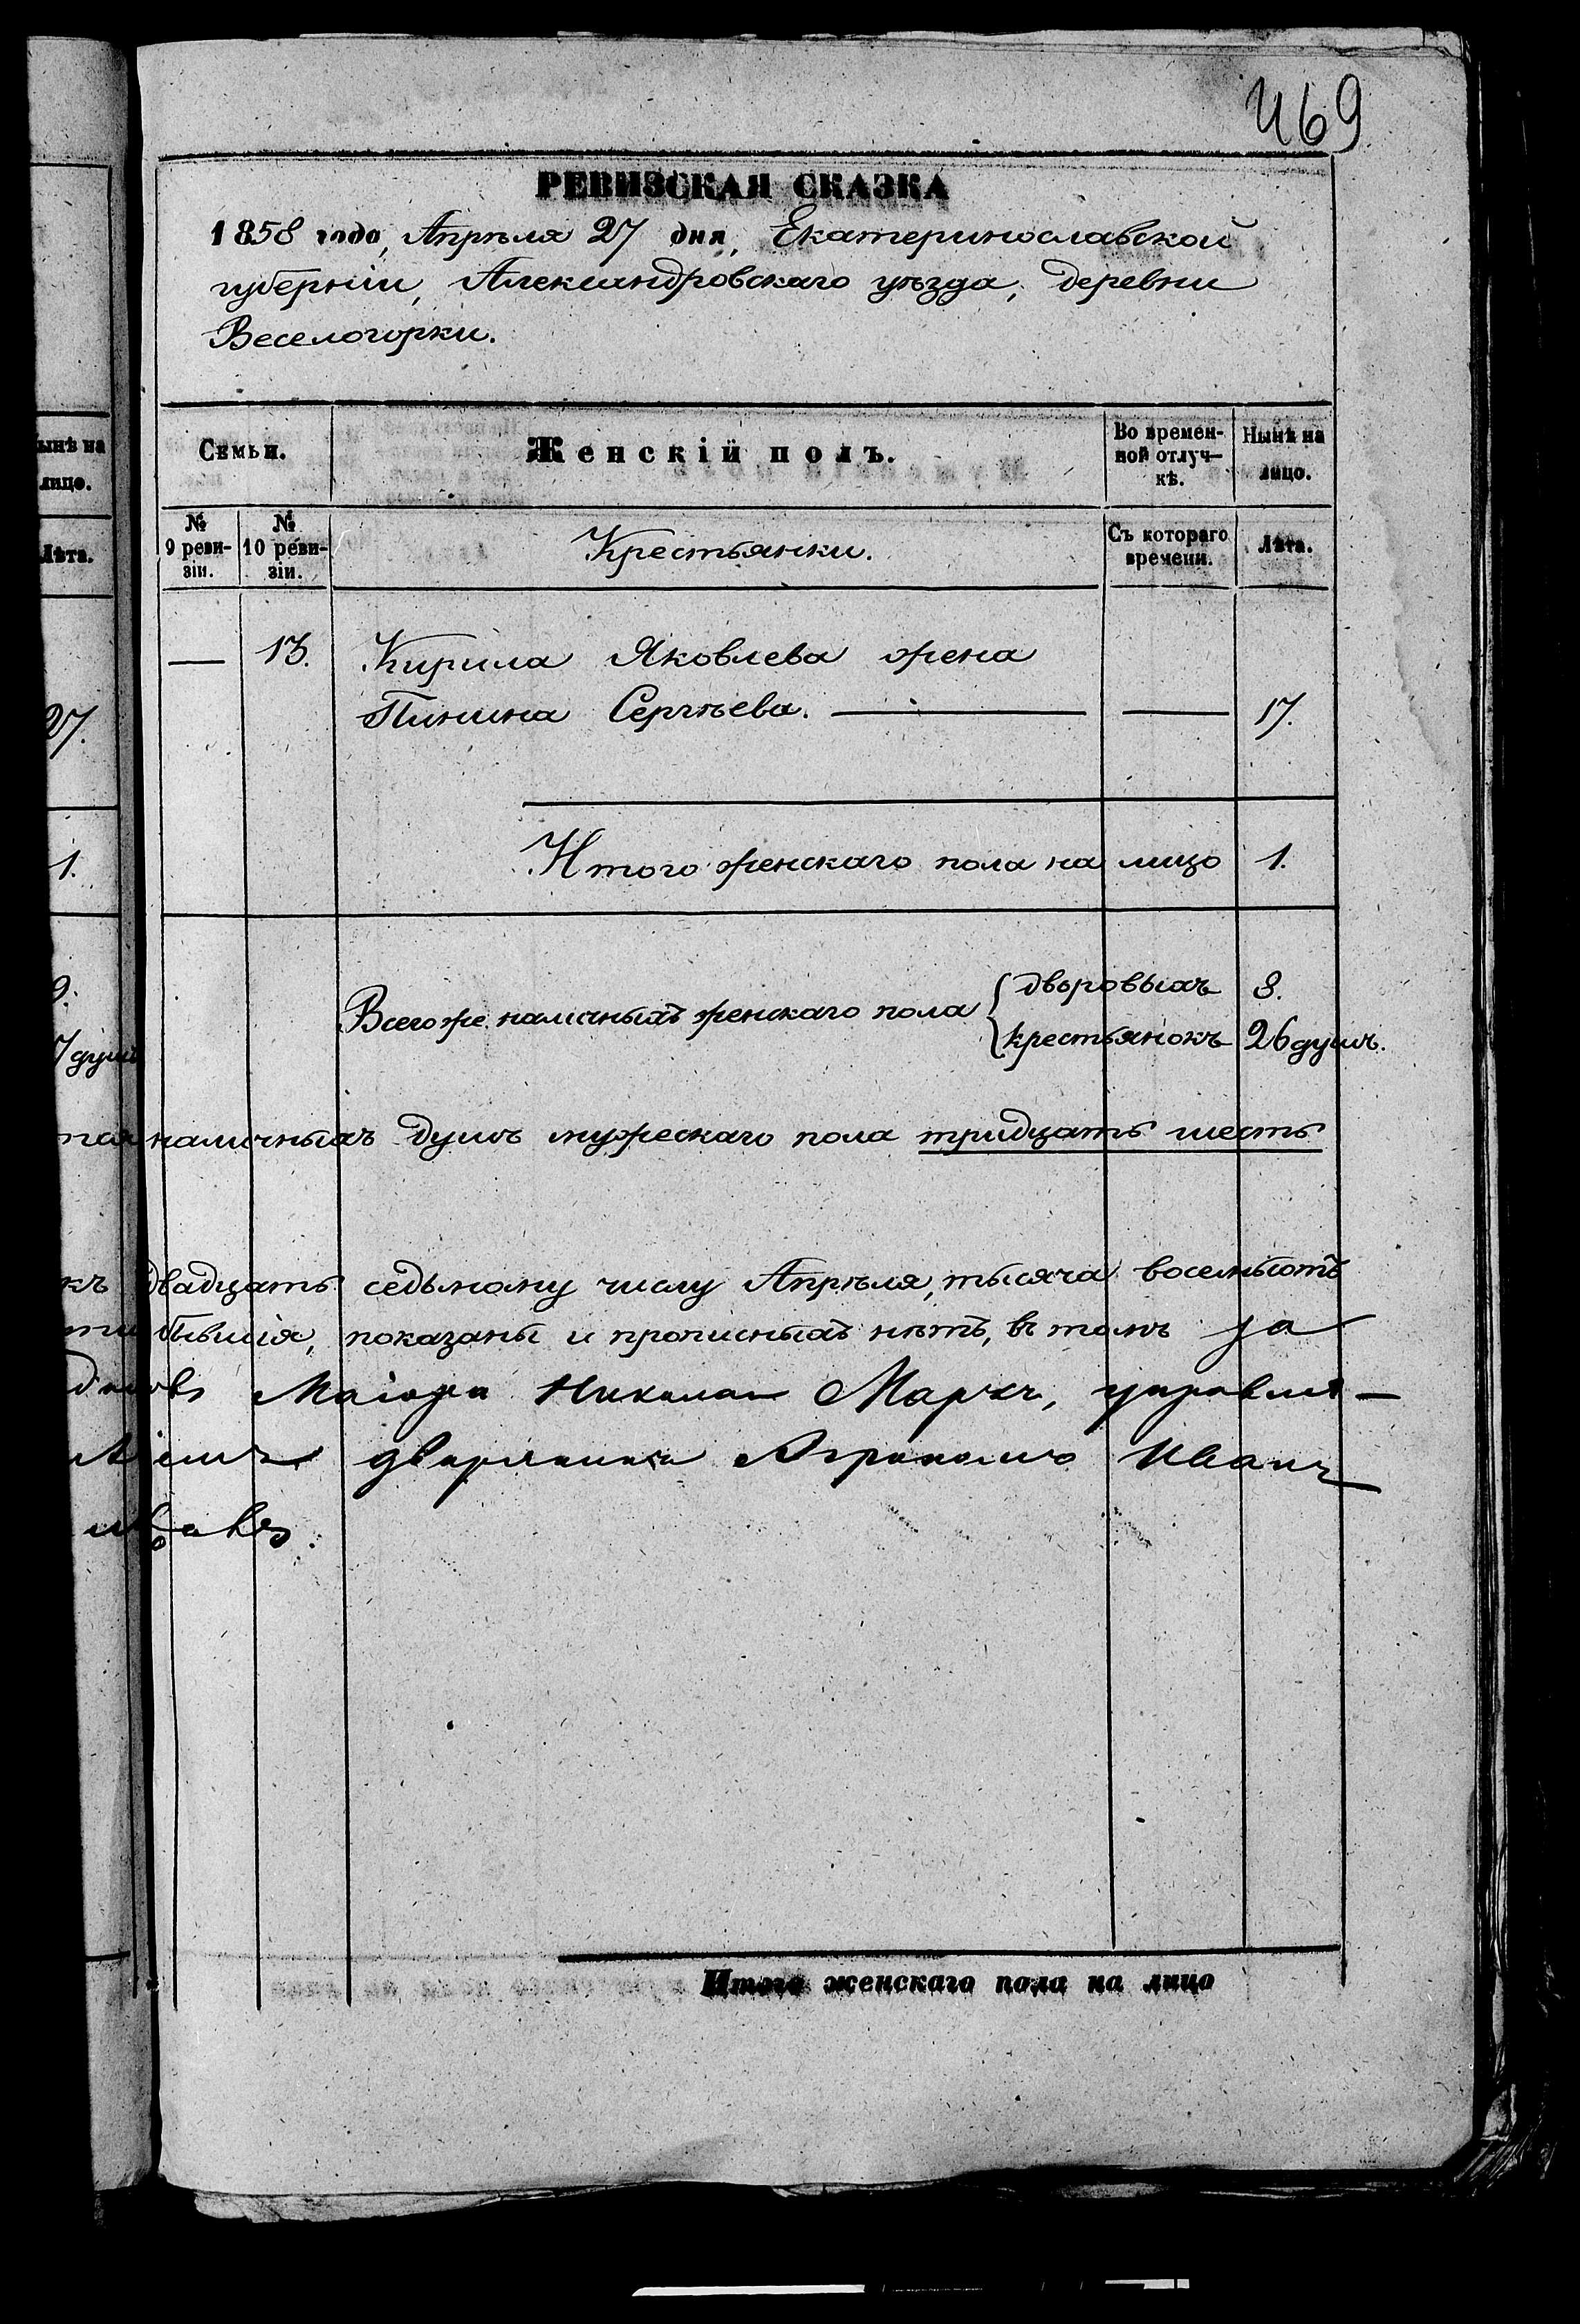 469
РЕВИЗСКАЯ СКАЗКА
1858 года, Апрѣля 27 дня, Екатеринославской
губерніи, Александровскаго уѣзда, деревни
Веселогорки.
ынѣ на
лицо.
Лѣта.
Семьи.
Женскій полъ.
Во времен-
ной отлуч-
кѣ.
Нынѣ на
лицо.
№
9 реви-
зіи.
№
10 реви-
зіи.
Крестьянки.
Съ котораго
времени.
Лѣта.
— 13. Кирила Яковлева жена
27.
Пинина Сергѣева. — — 17.
1.
Итого женскаго пола на лицо 1.
9.
Всего же наличныхъ женскаго пола { дворовыхъ 8.
крестьянокъ 26 душъ.
7 душъ
наличныхъ душъ мужескаго пола тридцать шесть
къ двадцать седьмому числу Апрѣля, тысяча восемьсотъ
бывшія, показаны и прописныхъ нѣтъ, въ томъ за
Маіора Николая Маркъ, управля-
дворянинъ Агрономъ Иванъ
Итого женскаго пола на лицо